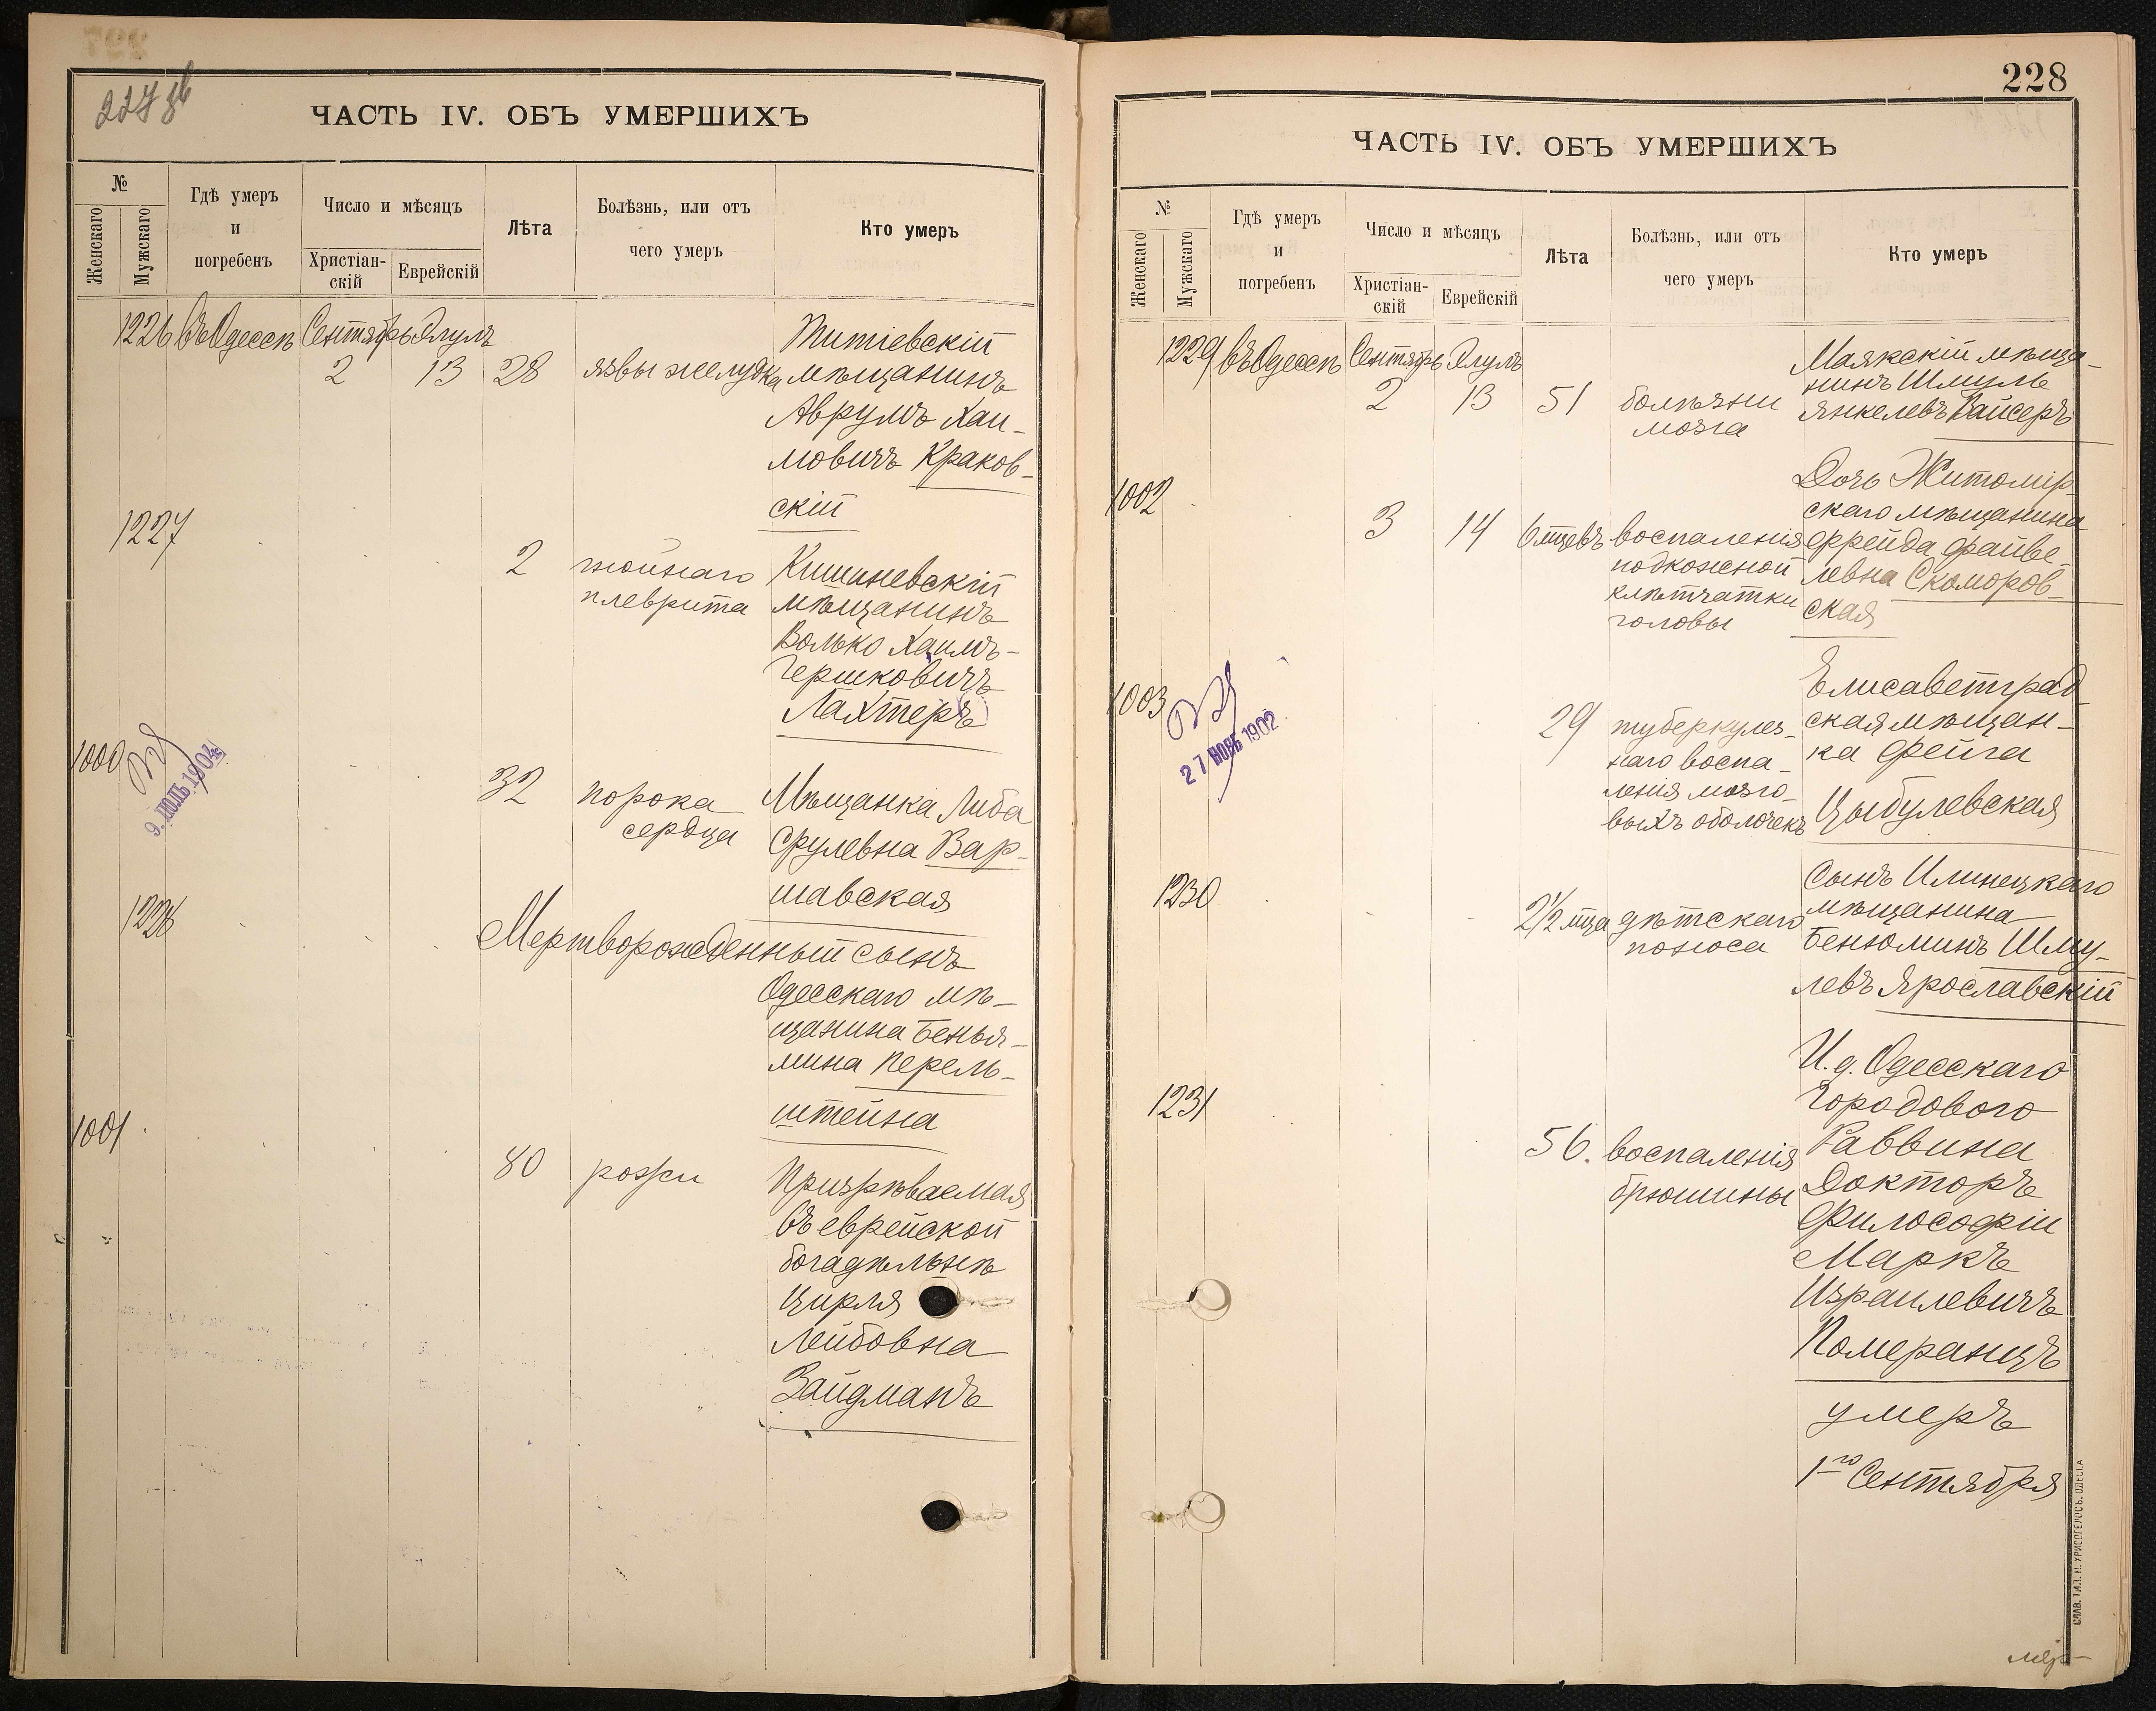 227 об
ЧАСТЬ IV. ОБЪ УМЕРШИХЪ
№
Женскаго
Мужскаго
Гдѣ умеръ
и
погребенъ
Число и мѣсяцъ
Христіан-
скій
Еврейскій
Лѣта
Болѣзнь, или отъ
чего умеръ
Кто умеръ
1226 въ Одессѣ Сентябрь Элулъ
2 13 28 язвы желудка
Титіевскій
мѣщанинъ
Аврумъ Хаи-
мовичъ Краков-
скій
1227
2 гнойнаго
плеврита
Кишиневскій
мѣщанинъ
Волько Хаимъ-
Гершковичъ
Лахтеръ
1000
9. ІЮЛЬ 1904
32 порока
сердца
Мѣщанка Либа
Срулевна Вар-
шавская
1228
Мертворожденный сынъ
Одесскаго мѣ-
щанина Бенья-
мина Перель-
штейна
1001
80 рожи
Призрѣваемая
въ еврейской
богадѣльнѣ
Цирля
Лейбовна
Зайдманъ
228
ЧАСТЬ IV. ОБЪ УМЕРШИХЪ
№
Женскаго
Мужскаго
Гдѣ умеръ
и
погребенъ
Число и мѣсяцъ
Христіан-
скій
Еврейскій
Лѣта
Болѣзнь, или отъ
чего умеръ
Кто умеръ
1229 въ Одессѣ Сентябрь Элулъ
2 13 51 болѣзни
мозга
Маякскій мѣща-
нинъ Шмуль
Янкелевъ Вайсеръ
1002
3 14 6 мцевъ воспаленія
подкожной
клѣтчатки
головы
Дочь Житомір-
скаго мѣщанина
Фрейда Файве-
левна Скоморов-
ская
1003
27 НОЯБ 1902
29 туберкулез-
наго воспа-
ленія мозго-
выхъ оболочекъ
Елисаветград-
ская мѣщан-
ка Фейга
Цыбулевская
1230
2 1/2 мца дѣтскаго
поноса
Сынъ Илинецкаго
мѣщанина
Бенюминъ Шму-
левъ Ярославскій
1231
56. воспаленія
брюшины
И. д. Одесскаго
Городового
Раввина
Докторъ
Философіи
Маркъ
Израилевичъ
Померанцъ
умеръ
1го Сентября
СЛАВ. ТИП. Н. ХРИСОГЕЛОСЪ. ОДЕССА